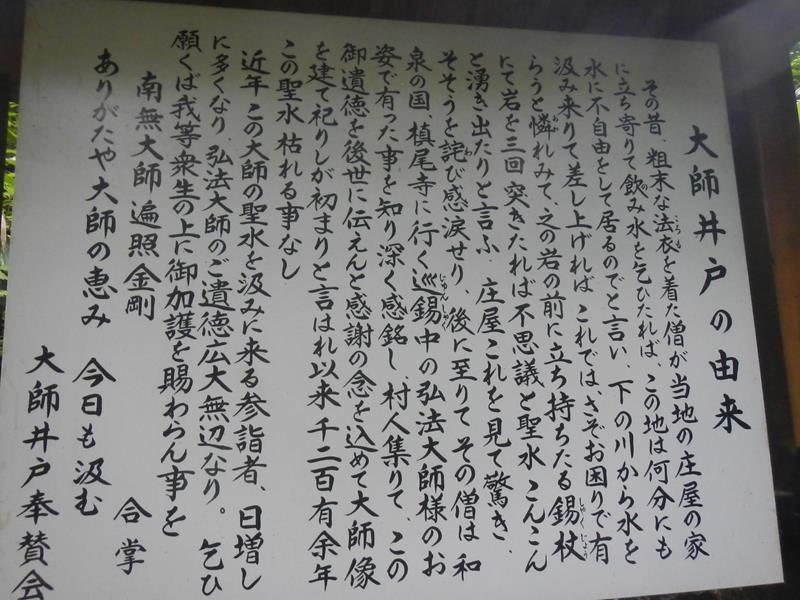 大師井戸の由来
その昔、粗末な法衣を着た僧が当地の庄屋の家
に立ち寄りて飲み水を乞ひたれば、この地は何分にも
水に不自由をして居るのでと言い、下の川から水を
汲み来りて差し上げれば これではさぞお困りで有
らうと憐れみて、之の岩の前に立ち持ちたる錫杖
にて岩を三回 突きたれば不思議と聖水 こんこん
と湧き出たりと言ふ 庄屋これを見て驚き、
そそうを詫び感涙せり、後に至りて その僧は 和
泉の国、槙尾寺に行く巡錫中の弘法大師様のお
姿で有った事を知り深く感銘し、村人集りて、この
御遺徳を後世に伝えんと感謝の念を込めて大師像
を建て祀りしが初まりと言はれ以来 千二百有余年
この聖水 枯れる事なし
近年 この大師の聖水を汲みに来る参詣者、日増し
に多くなり、弘法大師のご遺徳広大無辺なり。 乞ひ
願くば我等衆生の上に御加護を賜わらん事を
南無大師 遍照金剛 合掌
ありがたや大師の恵み 今日も汲む
大師井戸奉賛会